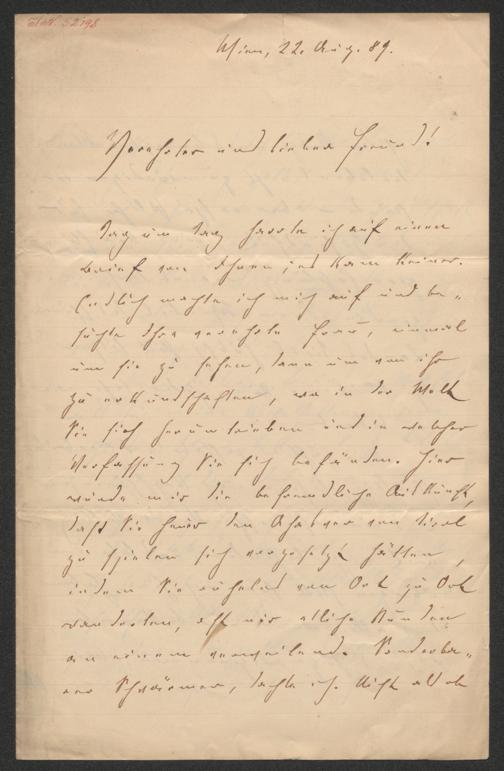 I.N. 52798
Wien, 22. Aug. 89.
Verehrter und lieber Freund!
Tag um Tag harrte ich auf einen
Brief von Ihnen, es kam keiner.
Endlich machte ich mich auf und be-
suchte Ihre verehrte Frau, einmal
um sie zu sehen, dann um von ihr
zu erkundschaften, wo in der Welt
Sie sich herumtrieben und in welcher
Verfassung Sie sich befänden. Hier
wurde mir die befremdliche Auskunft,
daß Sie heuer den Ahasver von Tirol
zu spielen sich vorgesetzt hätten,
indem Sie ruhelos von Ort zu Ort
wanderten, oft nur etliche Stunden
an einem verweilend. Sonderba-
rer Schwärmer, dachte ich. Nicht als ob